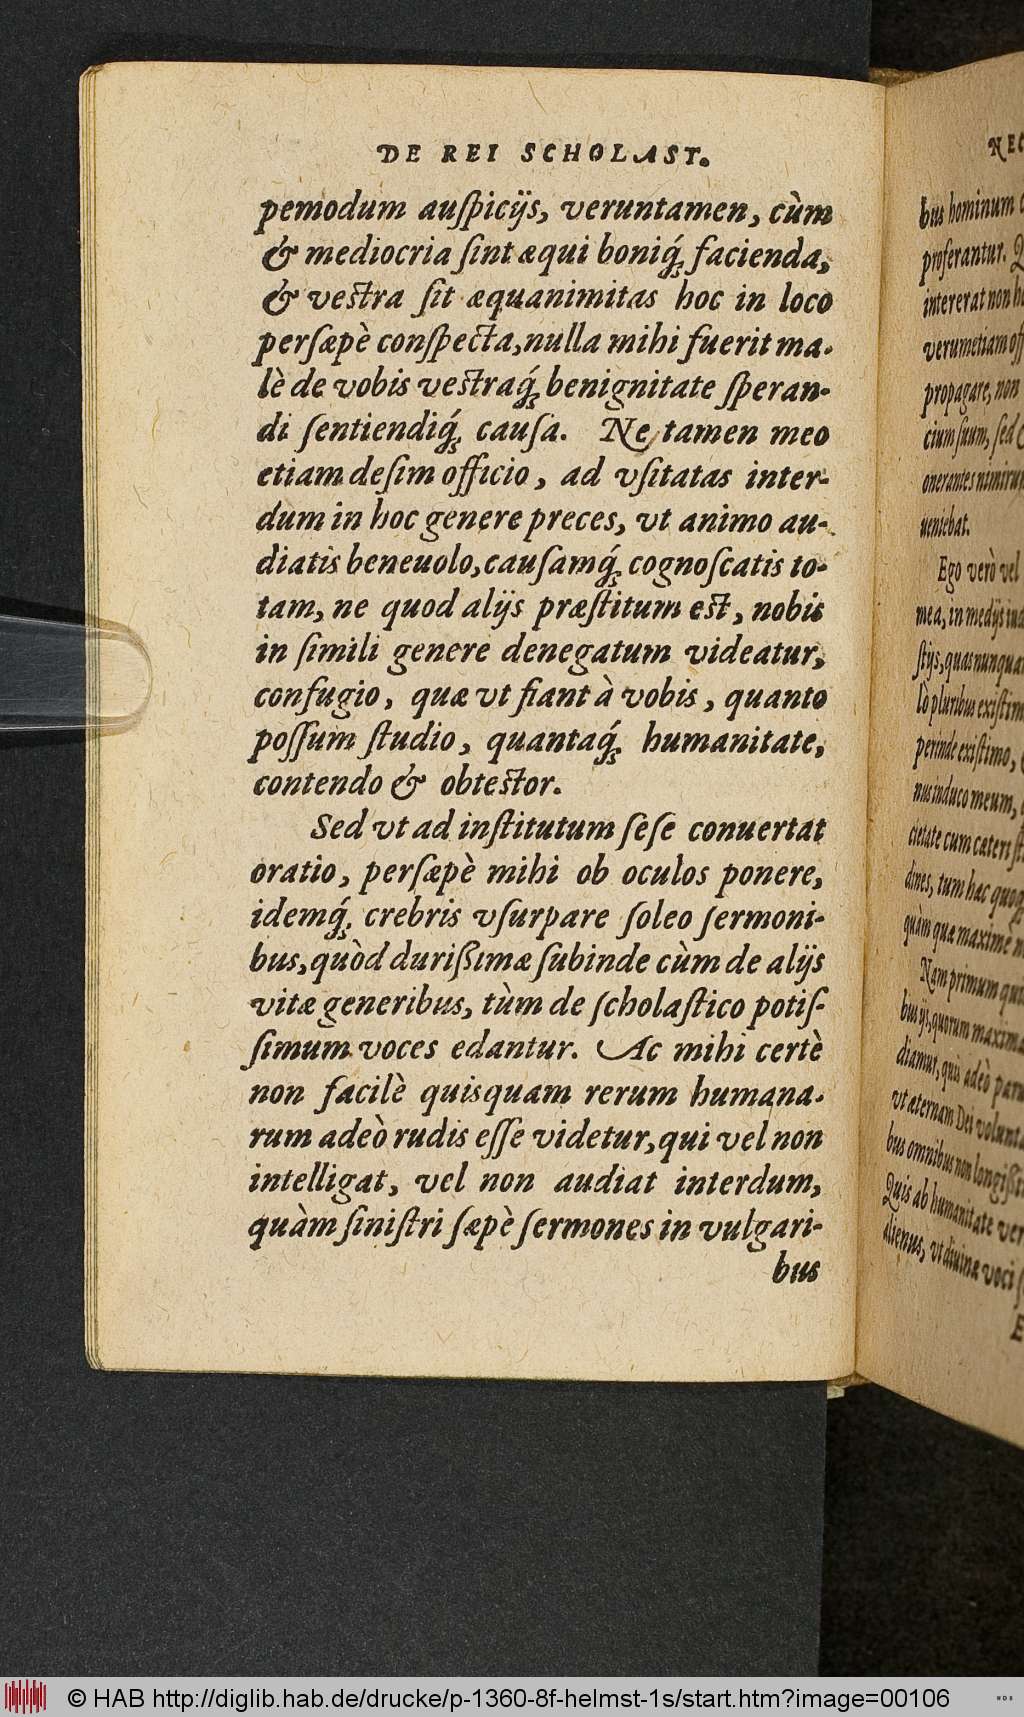 DE REI SCHOLAST.
pemodum auſpicijs, veruntamen, cùm
& mediocria ſint æqui boniq́; facienda,
& veſtra ſit æquanimitas hoc in loco
perſæpè conſpecta, nulla mihi fuerit ma-
lè de vobis veſtraq́; benignitate ſperan-
di ſentiendiq́; cauſa. Ne tamen meo
etiam deſim officio, ad vſitatas inter-
dum in hoc genere preces, vt animo au-
diatis beneuolo, cauſamq́; cognoſcatis to-
tam, ne quod alijs præſtitum eſt, nobis
in ſimili genere denegatum videatur,
confugio, quæ vt fiant à vobis, quanto
poſſum ſtudio, quantaq́; humanitate,
contendo & obteſtor.
Sed vt ad inſtitutum ſeſe conuertat
oratio, perſæpè mihi ob oculos ponere,
idemq́; crebris vſurpare ſoleo ſermoni-
bus, quòd durißimæ ſubinde cùm de alijs
vitæ generibus, tùm de ſcholaſtico potiſ-
ſimum voces edantur. Ac mihi certè
non facilè quisquam rerum humana-
rum adeò rudis eſſe videtur, qui vel non
intelligat, vel non audiat interdum,
quàm ſiniſtri ſæpè ſermones in vulgari-
bus
NEC
bus hominum
proferantur.
intererat non
verumetiam
propagare, non
cium ſuum, ſed
onerantes nimirum
ueniebat.
Ego verò vel
mea, in medijs
ſtijs, quas nunquam
lò pluribus
perinde exiſtimo,
nus induco meum,
cietate cum cæteris
dines, tum hac quoq;
quàm quæ maximè
Nam primum
bus ijs, quorum maxima
diamur, quis adeò
vt æternam Dei
bus omnibus non
Quis ab humanitate
alienus, vt diuinæ voci
© HAB http://diglib.hab.de/drucke/p-1360-8f-helmst-1s/start.htm?image=00106